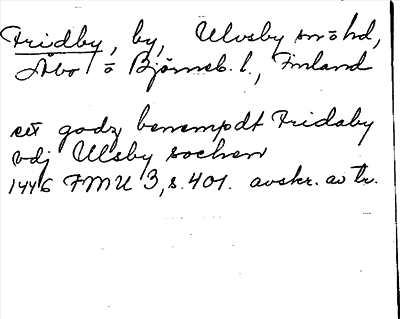 Fridby, by, Ulvsby sn o hd,
Åbo o Björneb. l., Finland
ett godz benempdt Fridaby
vdj Ulsby sochen
1446 FMU 3, s. 401. avskr. av tr.